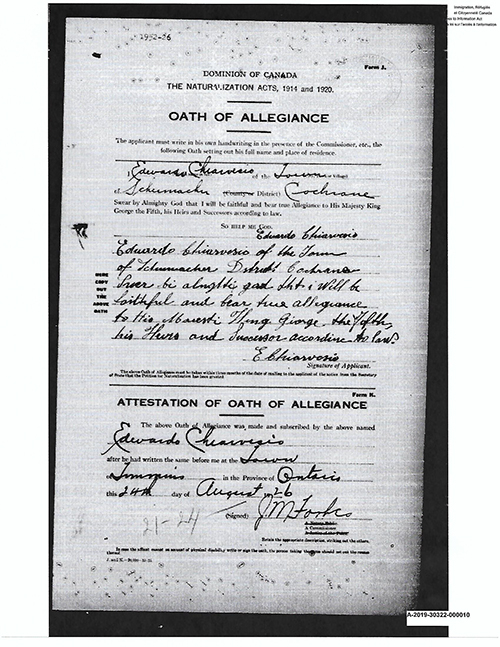 Immigration, Refugiés
et Citoyenneté Canada
to Information Act
sur l'accès à l'information
1952-26
Form J.
DOMINION OF CANADA
THE NATURALIZATION ACTS, 1914 and 1920.
OATH OF ALLEGIANCE
The applicant must write in his own handwriting in the presence of the Commissioner, etc., the
following Oath setting out his full name and place of residence.
I, Edwardo Chiarvesio of the Town
of Schumacher (County or District) Cochrane
Swear by Almighty God that I will be faithful and bear true Allegiance to His Majesty King
George the Fifth, his Heirs and Successors according to law.
SO HELP ME GOD.
Eduardo Chiarvesio
HERE
COPY
OUT
THE
ABOVE
OATH
Eduardo Chiarvesio of the Town
of Schumacher District Cochrane
Sver bi almgtti gad tht i will be
faithful and bear true allegiance
to His Maiesti King Giorge the Fifth
his Heirs and Sucessor accordine to law.
E Chiarvesio
Signature of Applicant.
The above Oath of Allegiance must be taken within three months of the date of mailing to the applicant of the notice from the Secretary
of State that the Petition for Naturalization has been granted
Form K.
ATTESTATION OF OATH OF ALLEGIANCE
The above Oath of Allegiance was made and subscribed by the above named
Edwardo Chiarvesio
after he had written the same before me at the Town
of Timmins in the Province of Ontario
this 24th day of August 1926
21-24
(Signed) J. M. Forbes
A Notary Public
A Commissioner
Retain the appropriate description, striking out the others.
In case the affiant cannot on account of physical disability write or sign the oath, the person taking the oath should set out the reason
thereof.
A-2019-30322-000010